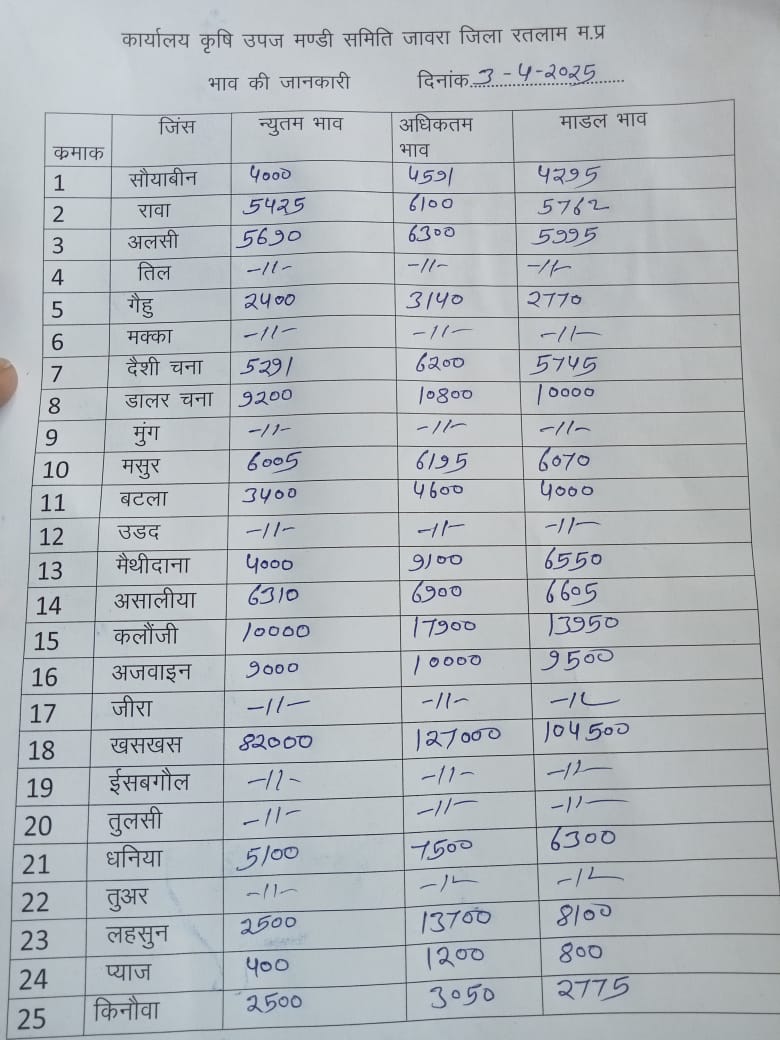 कार्यालय कृषि उपज मण्डी समिति जावरा जिला रतलाम म.प्र
भाव की जानकारी दिनांक 3-4-2025
कमाक जिंस न्युतम भाव अधिकतम भाव माडल भाव
1 सौयाबीन 4000 4591 4295
2 रावा 5425 6100 5762
3 अलसी 5690 6300 5995
4 तिल -11- -11- -11-
5 गैहु 2400 3140 2770
6 मक्का -11- -11- -11-
7 दैशी चना 5291 6200 5745
8 डालर चना 9200 10800 10000
9 मुंग -11- -11- -11-
10 मसुर 6005 6195 6070
11 बटला 3400 4600 4000
12 उडद -11- -11- -11-
13 मैथीदाना 4000 9100 6550
14 असालीया 6310 6900 6605
15 कलौंजी 10000 17900 13950
16 अजवाइन 9000 10000 9500
17 जीरा -11- -11- -11-
18 खसखस 82000 127000 104500
19 ईसबगौल -11- -11- -11-
20 तुलसी -11- -11- -11-
21 धनिया 5100 7500 6300
22 तुअर -11- -11- -11-
23 लहसुन 2500 13700 8100
24 प्याज 400 1200 800
25 किनौवा 2500 3050 2775